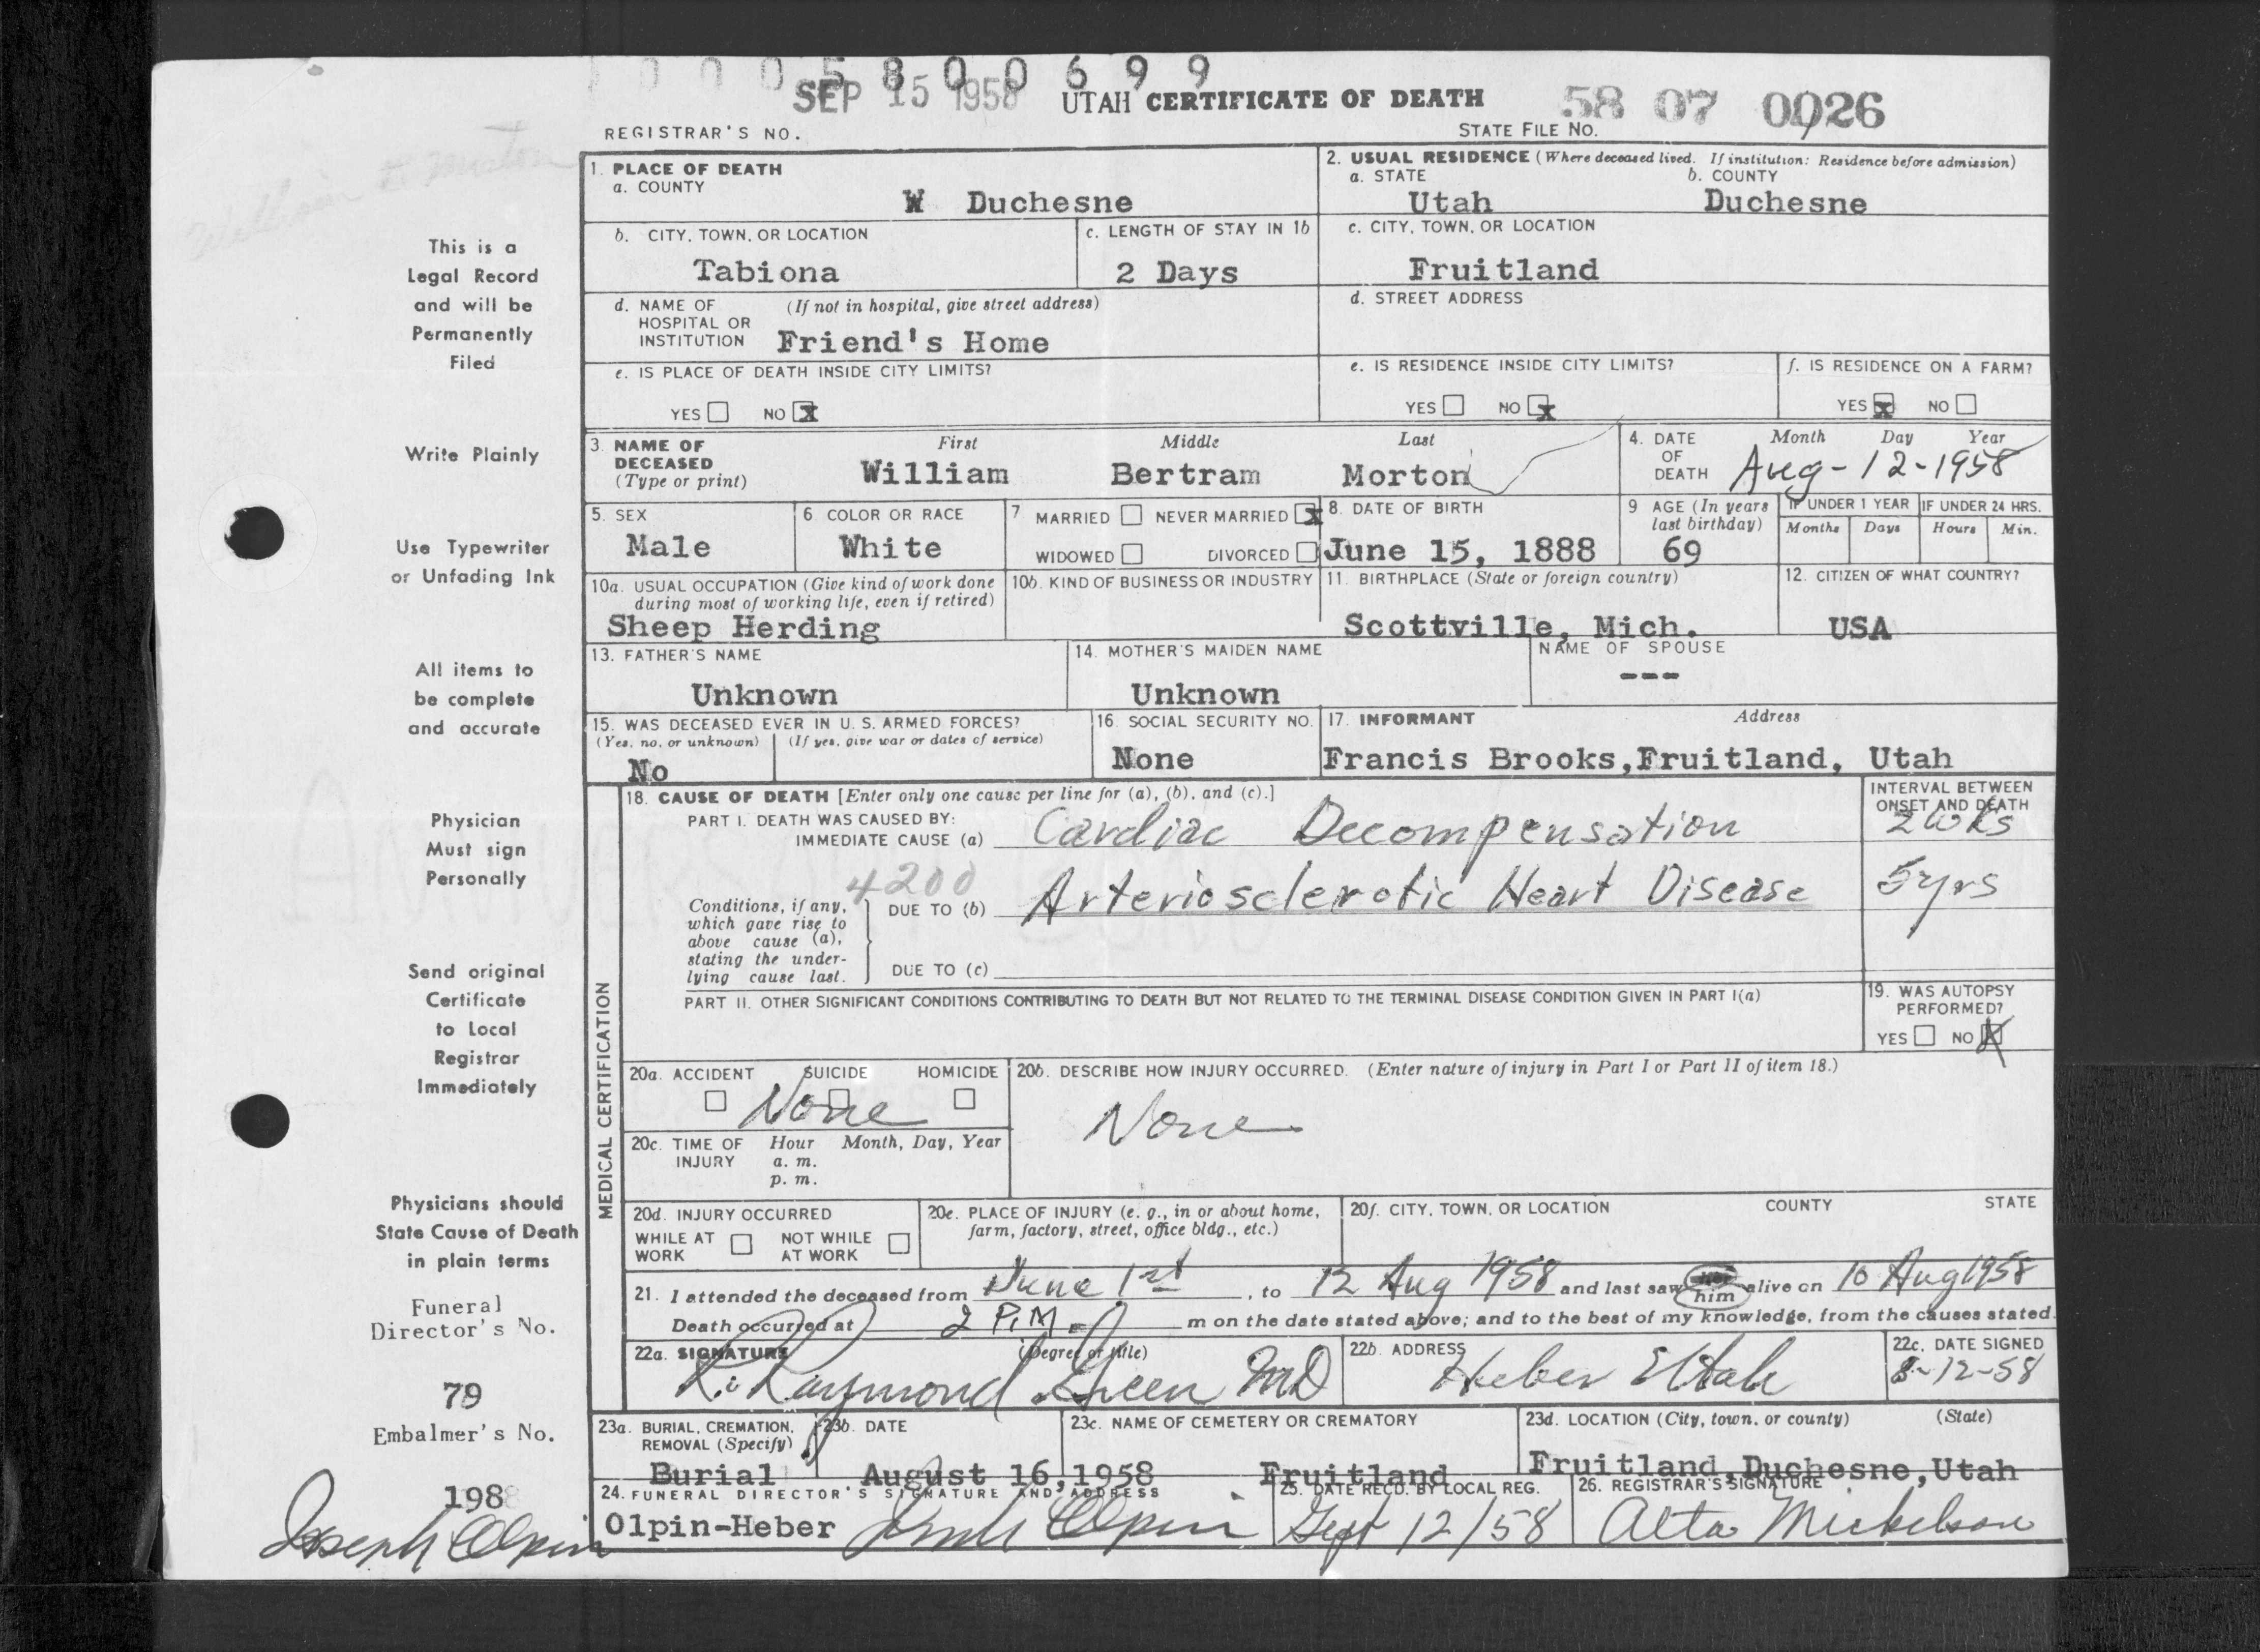 0 0 0 5 8 0 0 6 9 9
SEP 15 1958 UTAH CERTIFICATE OF DEATH 58 07 0026
REGISTRAR'S NO. STATE FILE NO.
1. PLACE OF DEATH
a. COUNTY
W Duchesne
2. USUAL RESIDENCE (Where deceased lived. If institution: Residence before admission)
a. STATE b. COUNTY
Utah Duchesne
b. CITY, TOWN, OR LOCATION c. LENGTH OF STAY IN 1b c. CITY, TOWN, OR LOCATION
Tabiona 2 Days Fruitland
d. NAME OF HOSPITAL OR INSTITUTION (If not in hospital, give street address)
Friend's Home
d. STREET ADDRESS
e. IS PLACE OF DEATH INSIDE CITY LIMITS?
YES NO X
e. IS RESIDENCE INSIDE CITY LIMITS?
YES NO X
f. IS RESIDENCE ON A FARM?
YES X NO
3. NAME OF DECEASED (Type or print)
First Middle Last
William Bertram Morton
4. DATE OF DEATH Month Day Year
Aug-12-1958
5. SEX
Male
6. COLOR OR RACE
White
7 MARRIED NEVER MARRIED X
WIDOWED DIVORCED
8. DATE OF BIRTH
June 15, 1888
9 AGE (In years last birthday)
69
IF UNDER 1 YEAR IF UNDER 24 HRS.
Months Days Hours Min.
10a. USUAL OCCUPATION (Give kind of work done during most of working life, even if retired)
Sheep Herding
10b. KIND OF BUSINESS OR INDUSTRY
11. BIRTHPLACE (State or foreign country)
Scottville, Mich.
12. CITIZEN OF WHAT COUNTRY?
USA
13. FATHER'S NAME
Unknown
14. MOTHER'S MAIDEN NAME
Unknown
NAME OF SPOUSE
---
15. WAS DECEASED EVER IN U. S. ARMED FORCES?
(Yes, no, or unknown) (If yes, give war or dates of service)
No
16. SOCIAL SECURITY NO.
None
17. INFORMANT Address
Francis Brooks, Fruitland, Utah
MEDICAL CERTIFICATION
18. CAUSE OF DEATH [Enter only one cause per line for (a), (b), and (c).]
INTERVAL BETWEEN ONSET AND DEATH
PART I. DEATH WAS CAUSED BY:
IMMEDIATE CAUSE (a) Cardiac Decompensation 2 wks
4200
Conditions, if any, which gave rise to above cause (a), stating the underlying cause last.
DUE TO (b) Arteriosclerotic Heart Disease 5 yrs
DUE TO (c)
PART II. OTHER SIGNIFICANT CONDITIONS CONTRIBUTING TO DEATH BUT NOT RELATED TO THE TERMINAL DISEASE CONDITION GIVEN IN PART I(a)
19. WAS AUTOPSY PERFORMED?
YES NO X
20a. ACCIDENT SUICIDE HOMICIDE
None
20b. DESCRIBE HOW INJURY OCCURRED. (Enter nature of injury in Part I or Part II of item 18.)
None
20c. TIME OF INJURY Hour Month, Day, Year
a. m.
p. m.
20d. INJURY OCCURRED
WHILE AT WORK NOT WHILE AT WORK
20e. PLACE OF INJURY (e. g., in or about home, farm, factory, street, office bldg., etc.)
20f. CITY, TOWN, OR LOCATION COUNTY STATE
21. I attended the deceased from June 1st, to 12 Aug 1958 and last saw him alive on 10 Aug 1958
Death occurred at 2 P.M. m on the date stated above; and to the best of my knowledge, from the causes stated.
22a. SIGNATURE (Degree or title)
R. Raymond Green MD
22b. ADDRESS
Heber Utah
22c. DATE SIGNED
8-12-58
23a. BURIAL, CREMATION, REMOVAL (Specify)
Burial
23b. DATE
August 16, 1958
23c. NAME OF CEMETERY OR CREMATORY
Fruitland
23d. LOCATION (City, town, or county) (State)
Fruitland, Duchesne, Utah
24. FUNERAL DIRECTOR'S SIGNATURE AND ADDRESS
Olpin-Heber Joseph Olpin
25. DATE REC'D. BY LOCAL REG.
Sept 12/58
26. REGISTRAR'S SIGNATURE
Alta Mickelson
This is a
Legal Record
and will be
Permanently
Filed
Write Plainly
Use Typewriter
or Unfading Ink
All items to
be complete
and accurate
Physician
Must sign
Personally
Send original
Certificate
to Local
Registrar
Immediately
Physicians should
State Cause of Death
in plain terms
Funeral
Director's No.
79
Embalmer's No.
198
Joseph Olpin